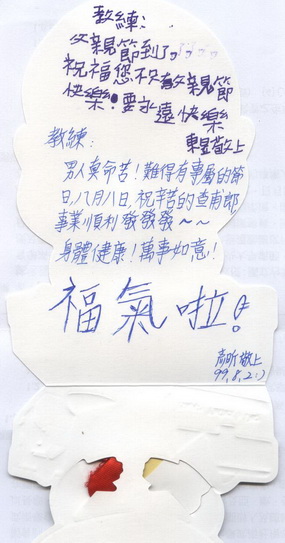 教練:
父親節到了ㄋㄋㄋㄋ
祝福您 父親節
快樂!要永遠快樂
敬上
教練:
男人真命苦!難得有專屬的節
日,八月八日,祝辛苦的查甫郎
事業順利發發發~~
身體健康!萬事如意!
福氣啦!
敬上
99.8.2